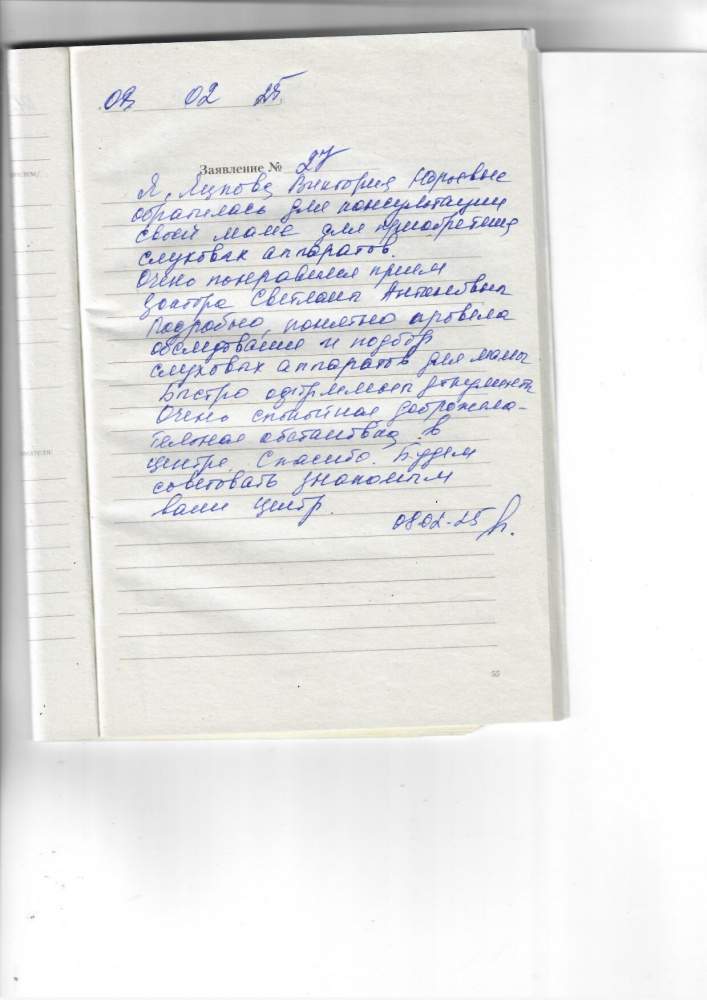 02 25
Заявление № 27
Я, Виктория Юрьевна
обратилась для консультации
своей маме для приобретения
слуховых аппаратов.
Очень понравился прием
доктора Светланы Антоновны
Подробно, понятно провела
обследование и подбор
слуховых аппаратов для мамы
Быстро документы
Очень спокойная доброжела-
тельная обстановка в
центре. Спасибо. Будем
советовать знакомым
ваш центр.
08.02-25
55